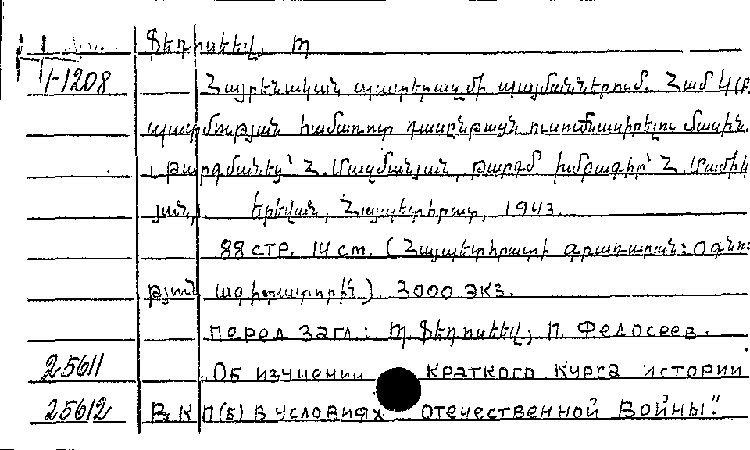 Ֆեդոսեեվ, Պ
1-1208 Հայրենական պատերազմի պայմաններում. ՀամԿ(բ
պատմության համառոտ դասընթացն ուսումնասիրելու մասին.
Թարգմանեց՝ Հ. Մազմանյան, թարգմ խմբագիր՝ Հ. Մամիկ
յան, Երեվան, Հայպետհրատ, 1943.
88 стр. 14 cm. (Հայպետհրատի գրադարան: Օգնու
թյուն ագիտատորին) 3000 экз.
перед загл: Պ. Ֆեդոսեեվ, П. Федосеев.
25611 Об изучении краткого курса истории
25612 ВКП(б) в условиях отечественной войны".